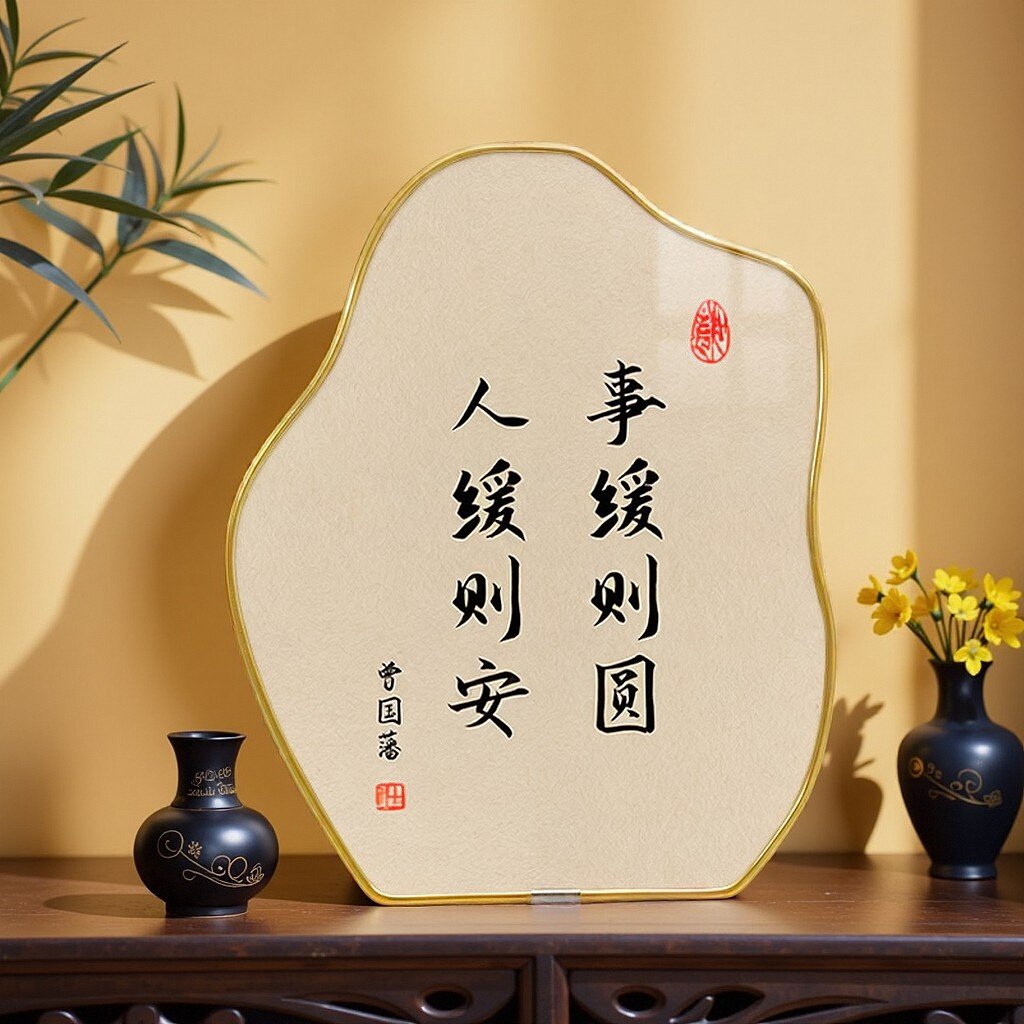 事缓则圆
人缓则安
曾国藩